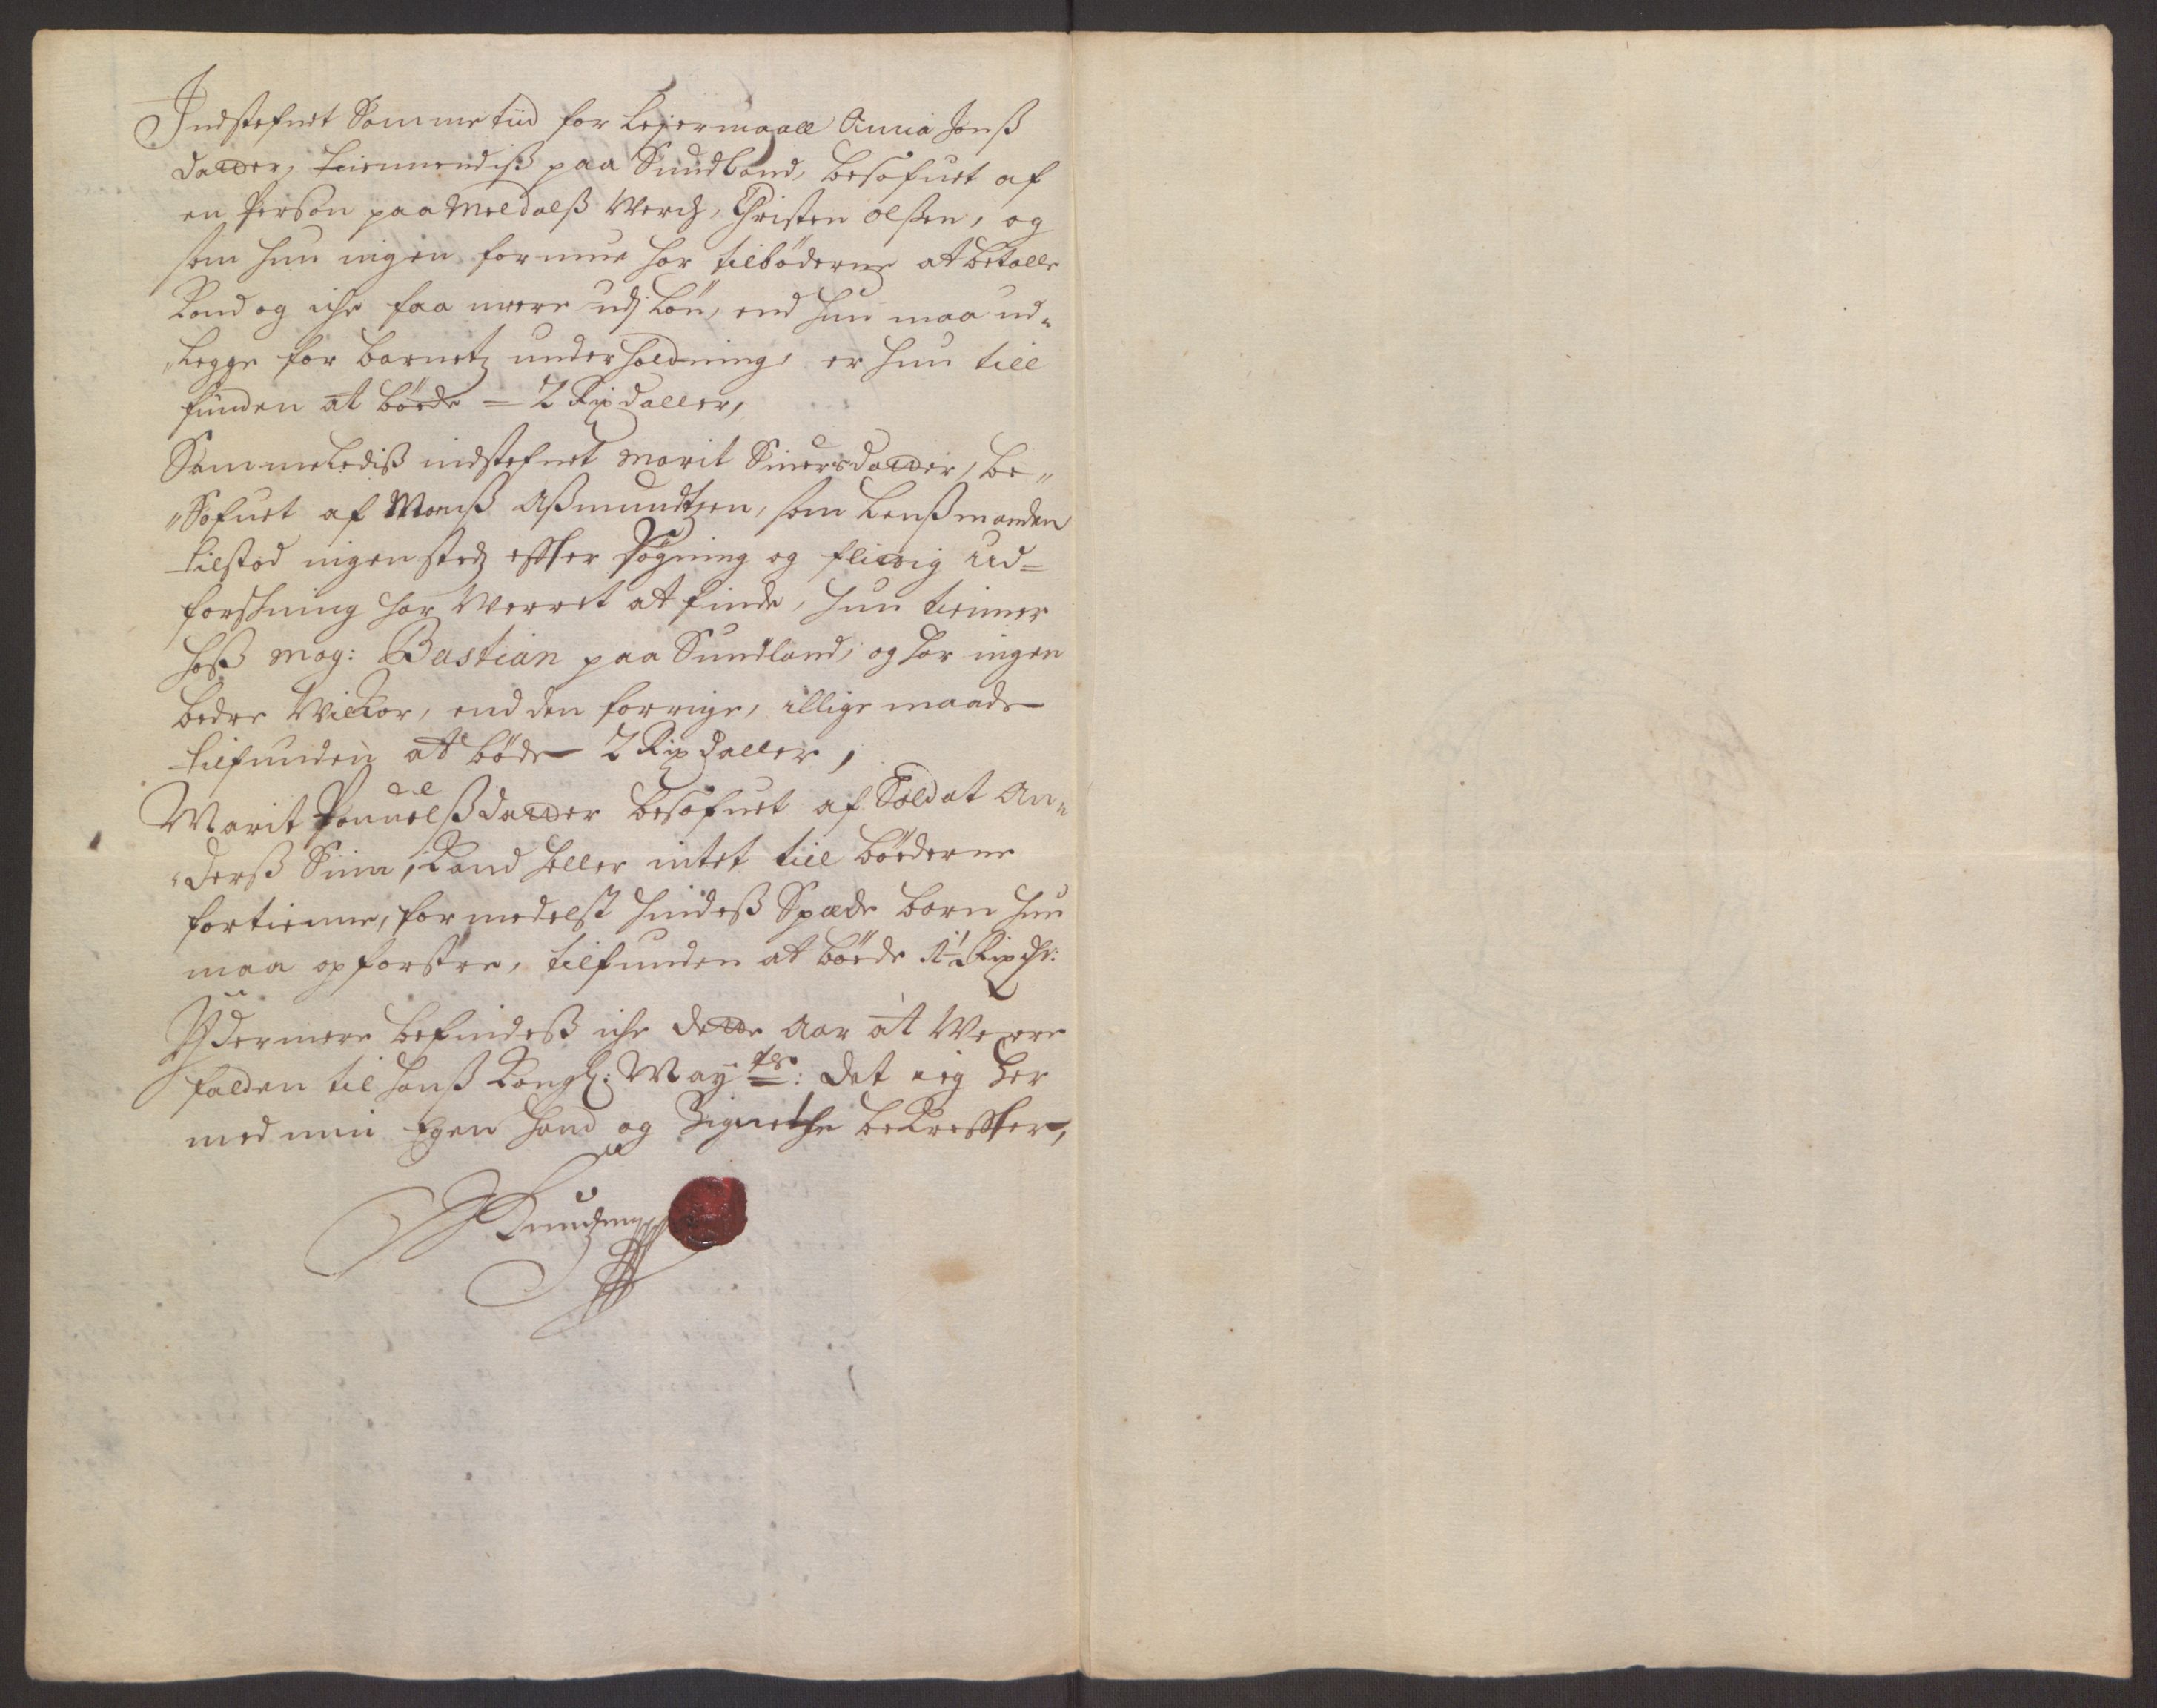 Indstefnet Samme tiid for Leyermaall Anna Jonß
daatter, tienendiß paa Sundland, besofuet af
en Person paa Meldalß Werch, Christen Olßen, og
som hun ingen formue har til böderne at betalle
Kand og iche faa mere udj Lön, end hun maa ud-
„legge for barnetz underholdning, er hun till
funden at böede = 2 Rixdaller,
Sammeledeß indstefnet Marit Siversdaatter, be„
„Sofuet af Monß Aßmundtsen, som Lenßmanden
tilstod ingen stedz effter Søgning og flittig Ud=
forschning har Werret at finde, hun tienner
hoß Mag: Bastian paa Sundland, og har ingen
bedre Wilkor, end den forrige, illige maade
tilfunden at böde 2 Rixdaller,
Marit Pouuelßdaatter besofuet af Soldat An„
„derß Kand heller intet till böederne
fortienne, formedelst hindeß Spæde barn hun
maa opfostre, tilfunden at böede 1½ Rixdr:
Ydermere befindeß iche dette Aar at Were
falden til Hanß Kongl: May^ts: det ieg her
med min Egen Hand og Zignethe bekreffter,
Knudzen